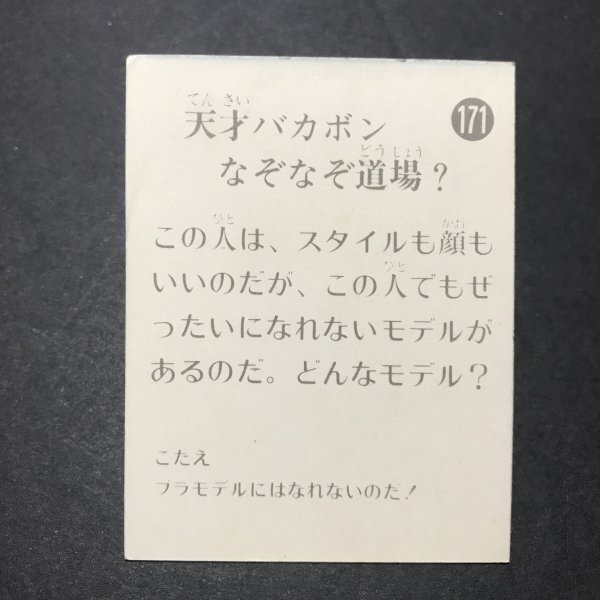 171
天才バカボン
なぞなぞ道場？
この人は、スタイルも顔も
いいのだが、この人でもぜ
ったいになれないモデルが
あるのだ。どんなモデル？
こたえ
プラモデルにはなれないのだ！